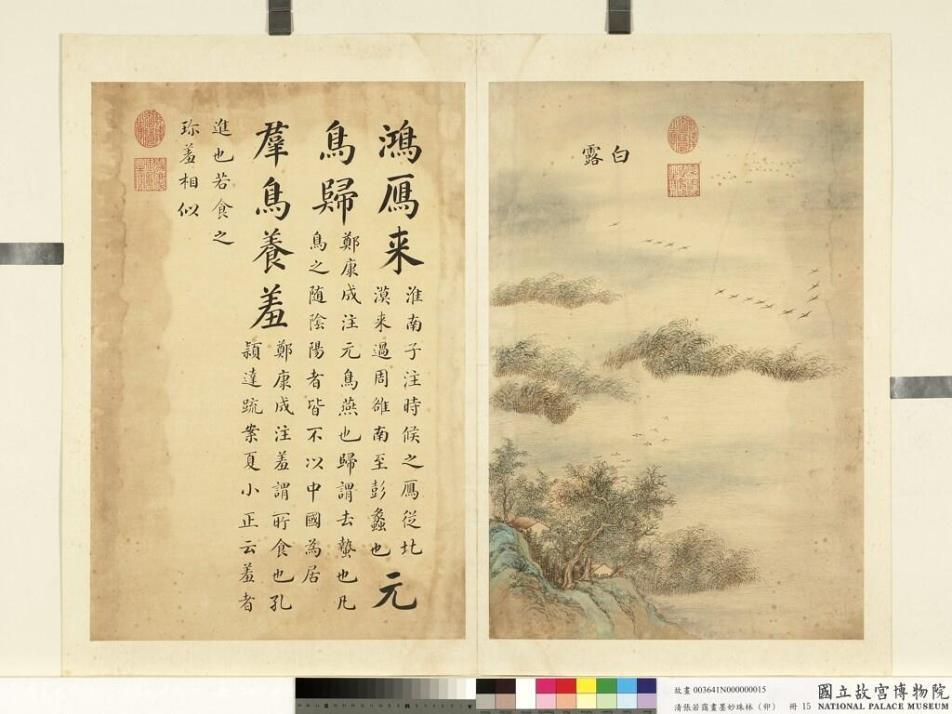 白露
鴻鴈来
淮南子注時候之鴈從北
漠来過周雒南至彭蠡也
元
鳥歸
鄭康成注元鳥燕也歸謂去蟄也凡
鳥之随陰陽者皆不以中國為居
羣鳥養羞
鄭康成注羞謂所食也孔
穎達疏案夏小正云羞者
進也若食之
珎羞相似
故畫 003641N000000015
清張若靄畫墨妙珠林（卯） 冊 15
國立故宮博物院
NATIONAL PALACE MUSEUM